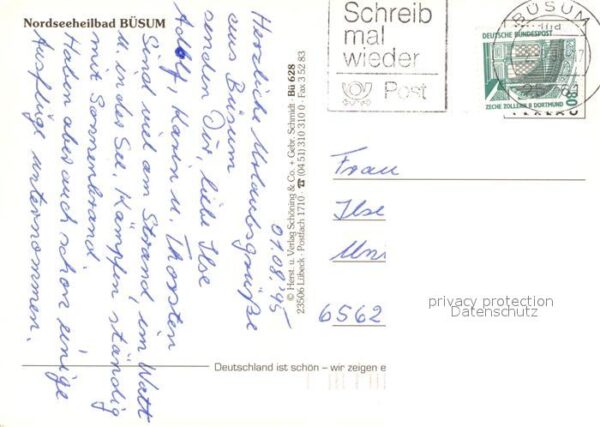 Nordseeheilbad BÜSUM
07.08.'95
Herzliche Urlaubsgrüße
aus Büsum
senden Dir, liebe Ilse
Adolf, Karin u. Thorsten
Sind viel am Strand, im Watt
u. in der See. Kämpfen ständig
mit Sonnenbrand.
Haben aber auch schon einige
Ausflüge unternommen.
© Herst. u. Verlag Schöning & Co. + Gebr. Schmidt · Bü 628
23506 Lübeck · Postfach 1710 · ☎ (04 51) 310 310 0 · Fax 3 52 83
Schreib
mal
wieder
Post
BÜSUM
DEUTSCHE BUNDESPOST
80
ZECHE ZOLLERN II DORTMUND
Frau
Ilse
6562
privacy protection
Datenschutz
Deutschland ist schön – wir zeigen e